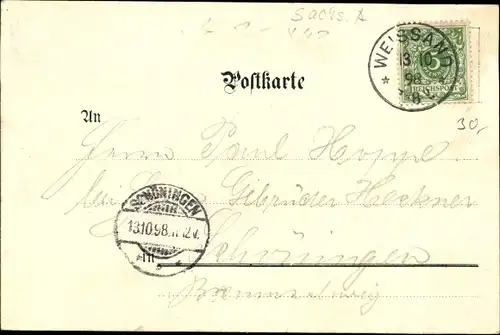 Sachs. A
WEISSAND
13 10
98
REICHSPOST
Postkarte
30,-
An
Herrn Paul Hoppe
bei Gebrüder Heckner
SCHÖNINGEN
13.10.98. 11-12V.
Schöningen
Braunschweig